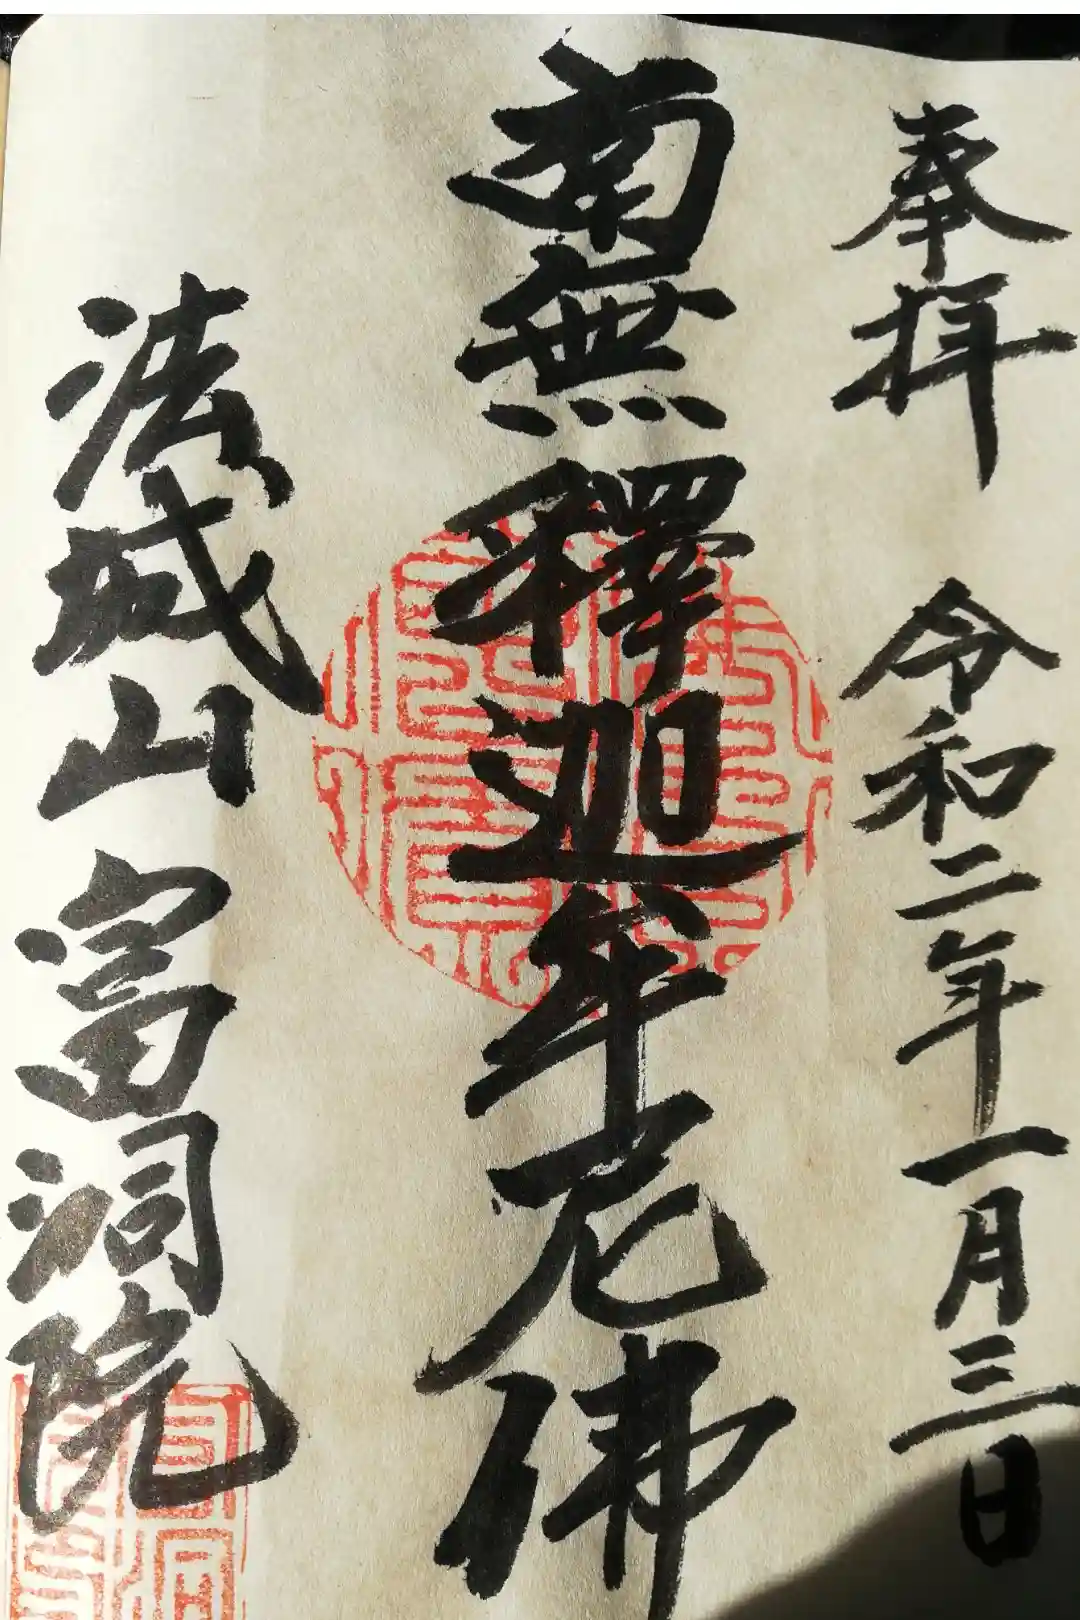 奉拝
令和二年一月三日
南無釋迦牟尼佛
法城山
富洞院